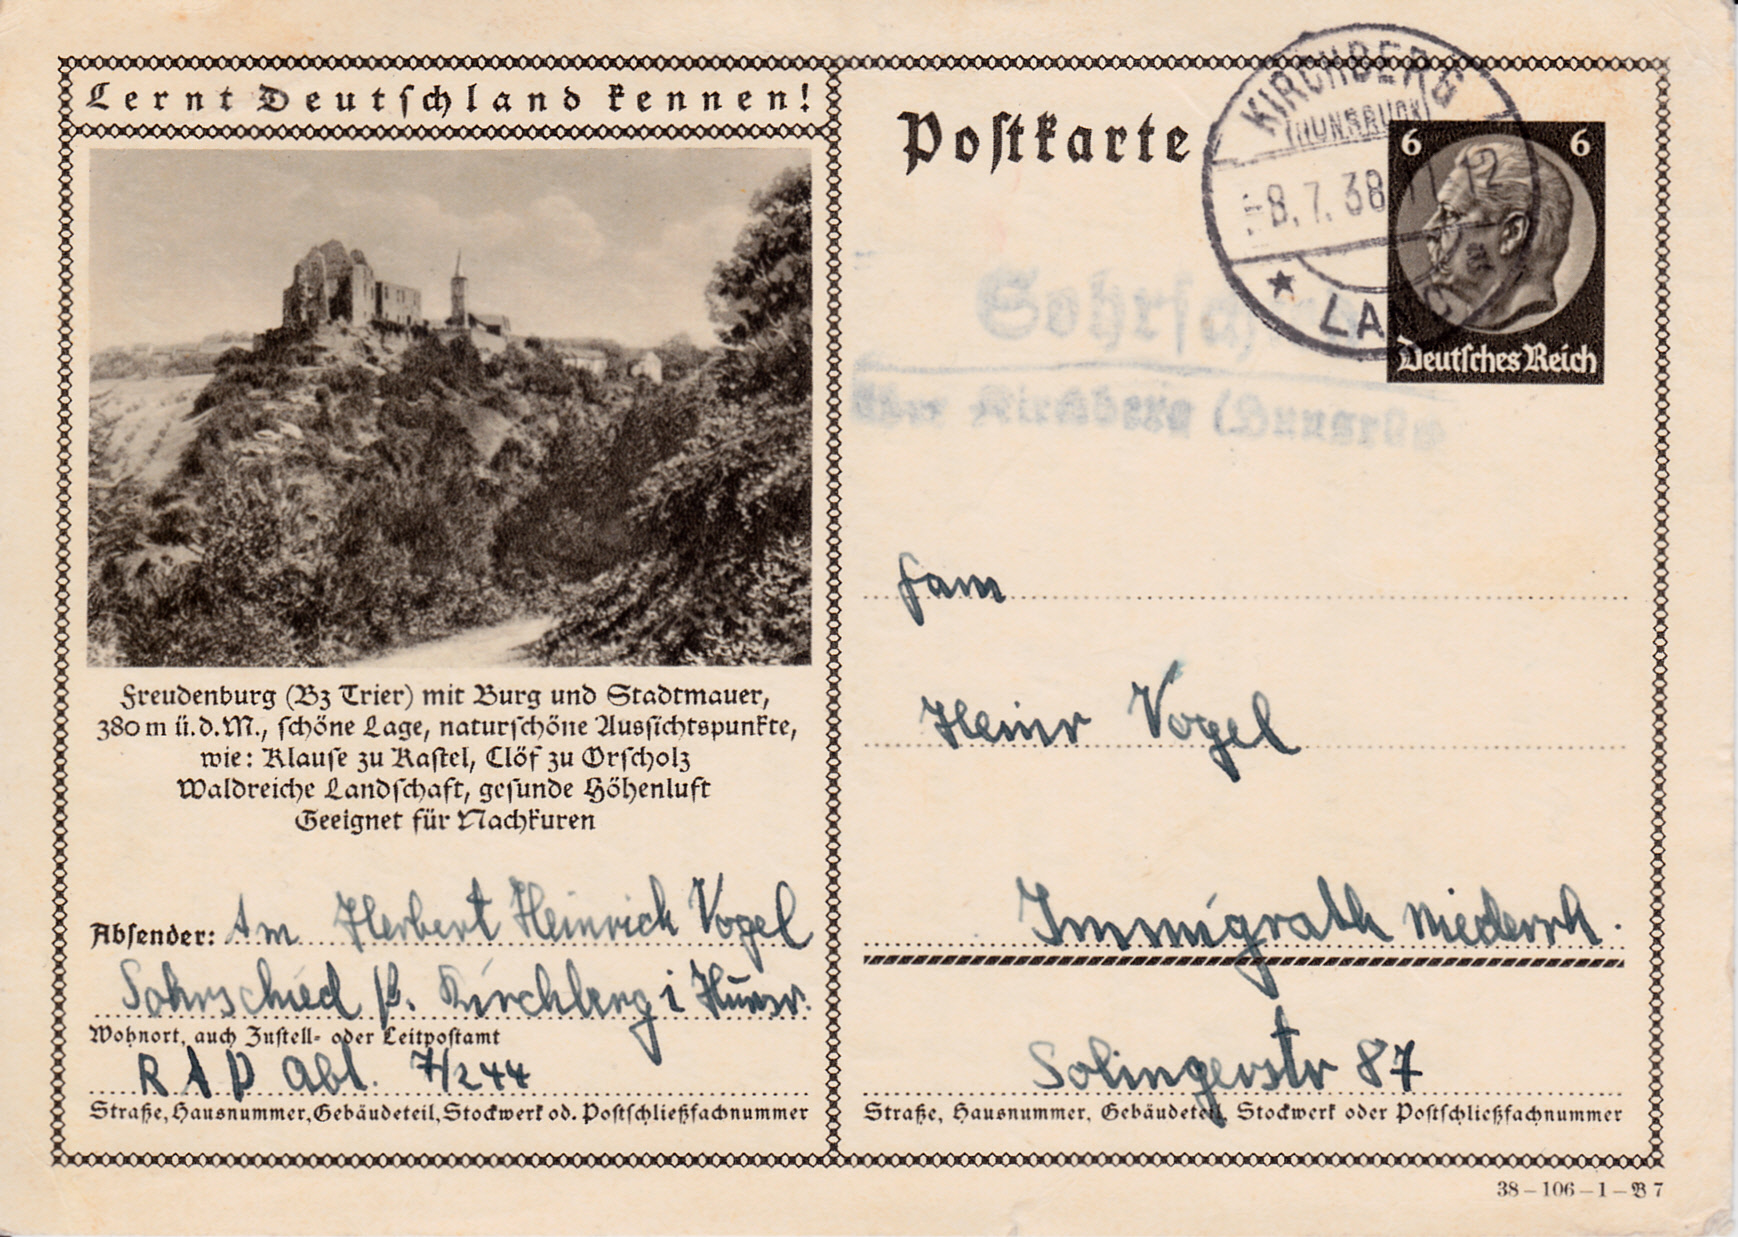 Lernt Deutschland kennen!
Freudenburg (Bz Trier) mit Burg und Stadtmauer,
380 m ü.d.M., schöne Lage, naturschöne Aussichtspunkte,
wie: Klause zu Kastel, Clöf zu Orscholz
Waldreiche Landschaft, gesunde Höhenluft
Geeignet für Nachkuren
Absender: Am Herbert Heinrich Vogel
Sohrschied Kirchberg i Hunsr.
Wohnort, auch Zustell- oder Leitpostamt
RAD Abt. 7/244
Straße, Hausnummer, Gebäudeteil, Stockwerk od. Postschließfachnummer
Postkarte
KIRCHBERG
(HUNSRÜCK)
-8.7.38 12
LA
6 6
Deutsches Reich
Sohrsch
über Kirchberg (Hunsrück
Fam
Heinr Vogel
Immigrath Niederrh.
Solingerstr 87
Straße, Hausnummer, Gebäudeteil, Stockwerk oder Postschließfachnummer
38-106-1-B7